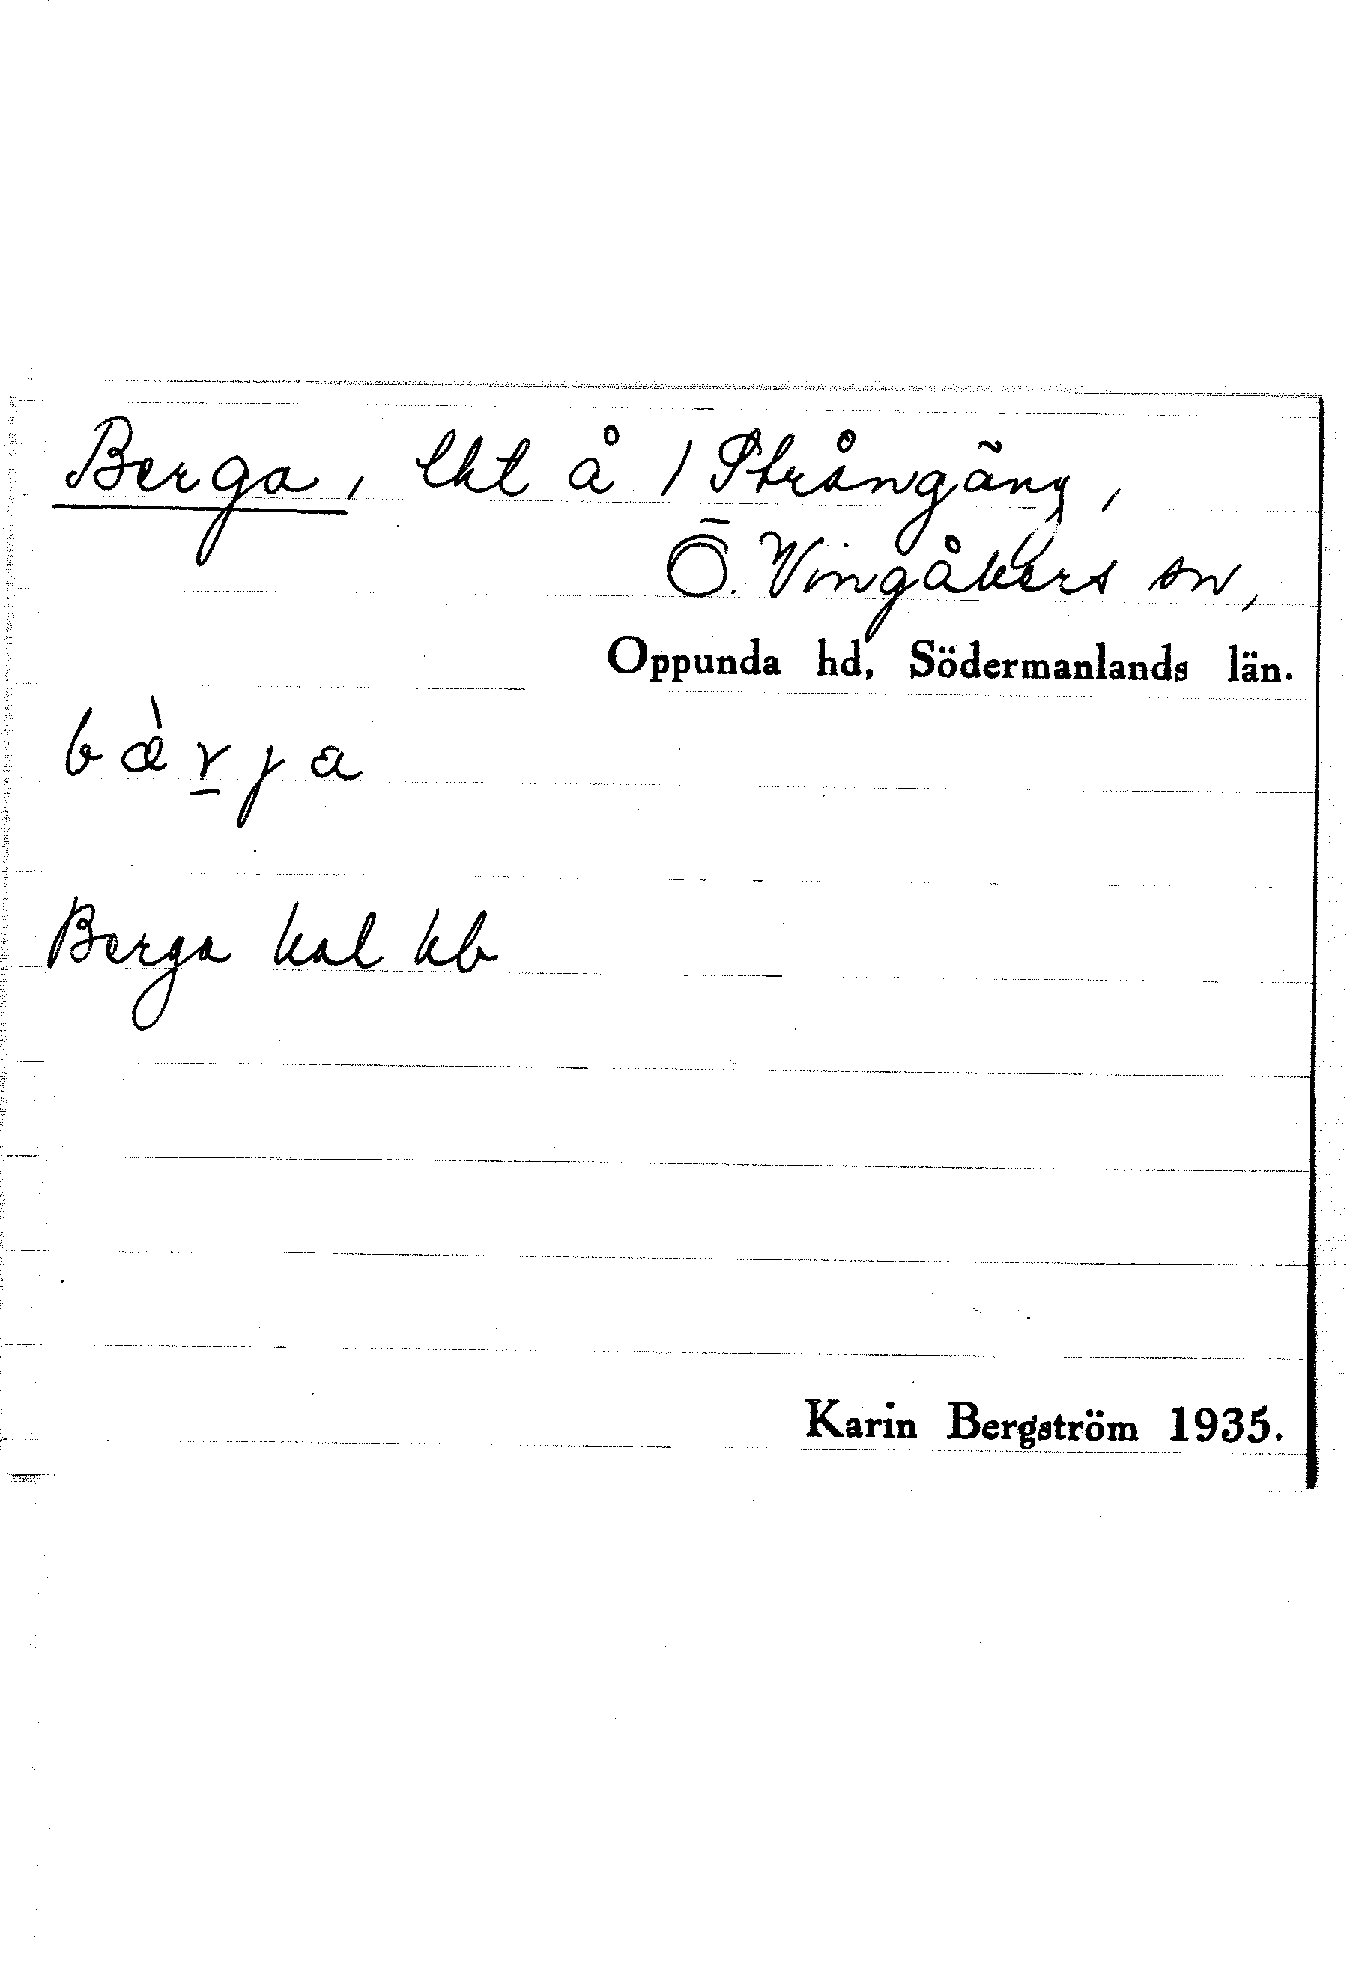 Berga, lht å 1 Strångäng,
Ö. Vingåkers sn,
Oppunda hd, Södermanlands län.
bæ̀r̲ja
Berga hal kb
Karin Bergström 1935.